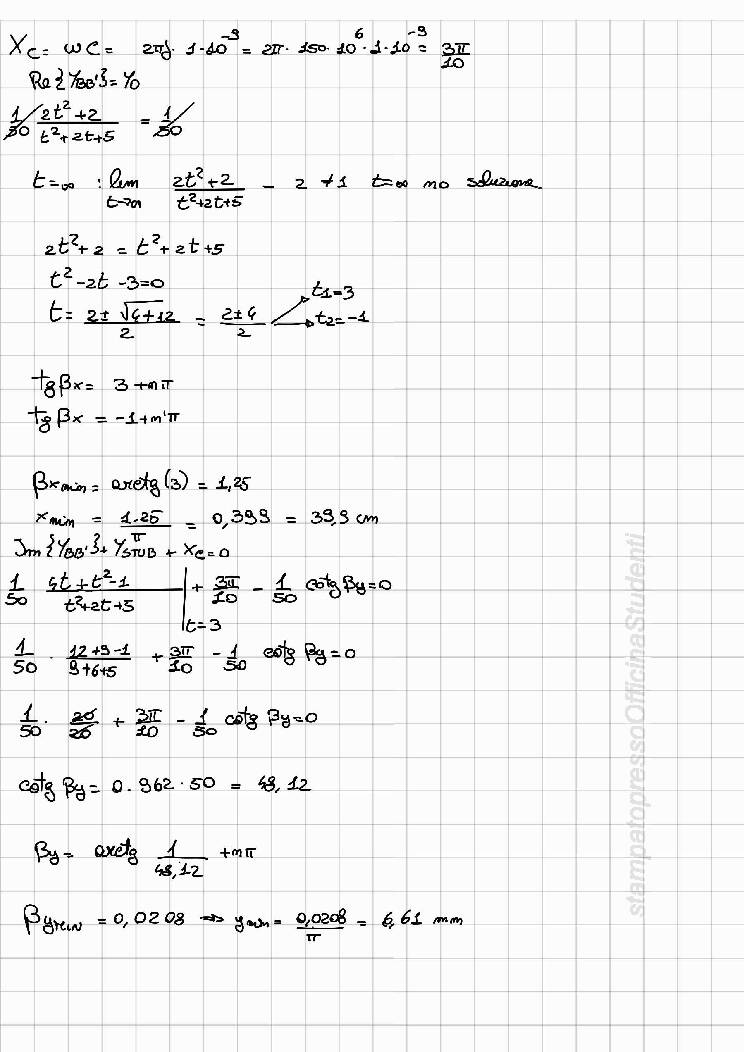 Xc = ωC = 2πf · 1·10⁻⁹ = 2π · 150·10⁶ · 1·10⁻⁹ = 3π/10
Re{Y_BB'} = Y0
1/50 (2t²+2)/(t²+2t+5) = 1/50
t=∞ : lim t→∞ (2t²+2)/(t²+2t+5) = 2 ≠ 1 t=∞ no soluzione
2t²+2 = t²+2t+5
t²-2t-3=0
t = (2±√(4+12))/2 = (2±4)/2 t1=3 t2=-1
tg βx = 3+nπ
tg βx = -1+n'π
βx min = arctg(3) = 1,25
x min = 1.25/π = 0,399 = 39,9 cm
Im{Y_BB'} + Y_STUB + Xc = 0
1/50 (4t+t²-1)/(t²+2t+5) |t=3 + 3π/10 - 1/50 cotg βy = 0
1/50 · (12+9-1)/(9+6+5) + 3π/10 - 1/50 cotg βy = 0
1/50 · 20/20 + 3π/10 - 1/50 cotg βy = 0
cotg βy = 0.962 · 50 = 48,12
βy = arctg 1/48,12 + nπ
βy min = 0,0208 ⇒ y min = 0,0208/π = 6,61 mm
stampatopressoOfficinaStudenti